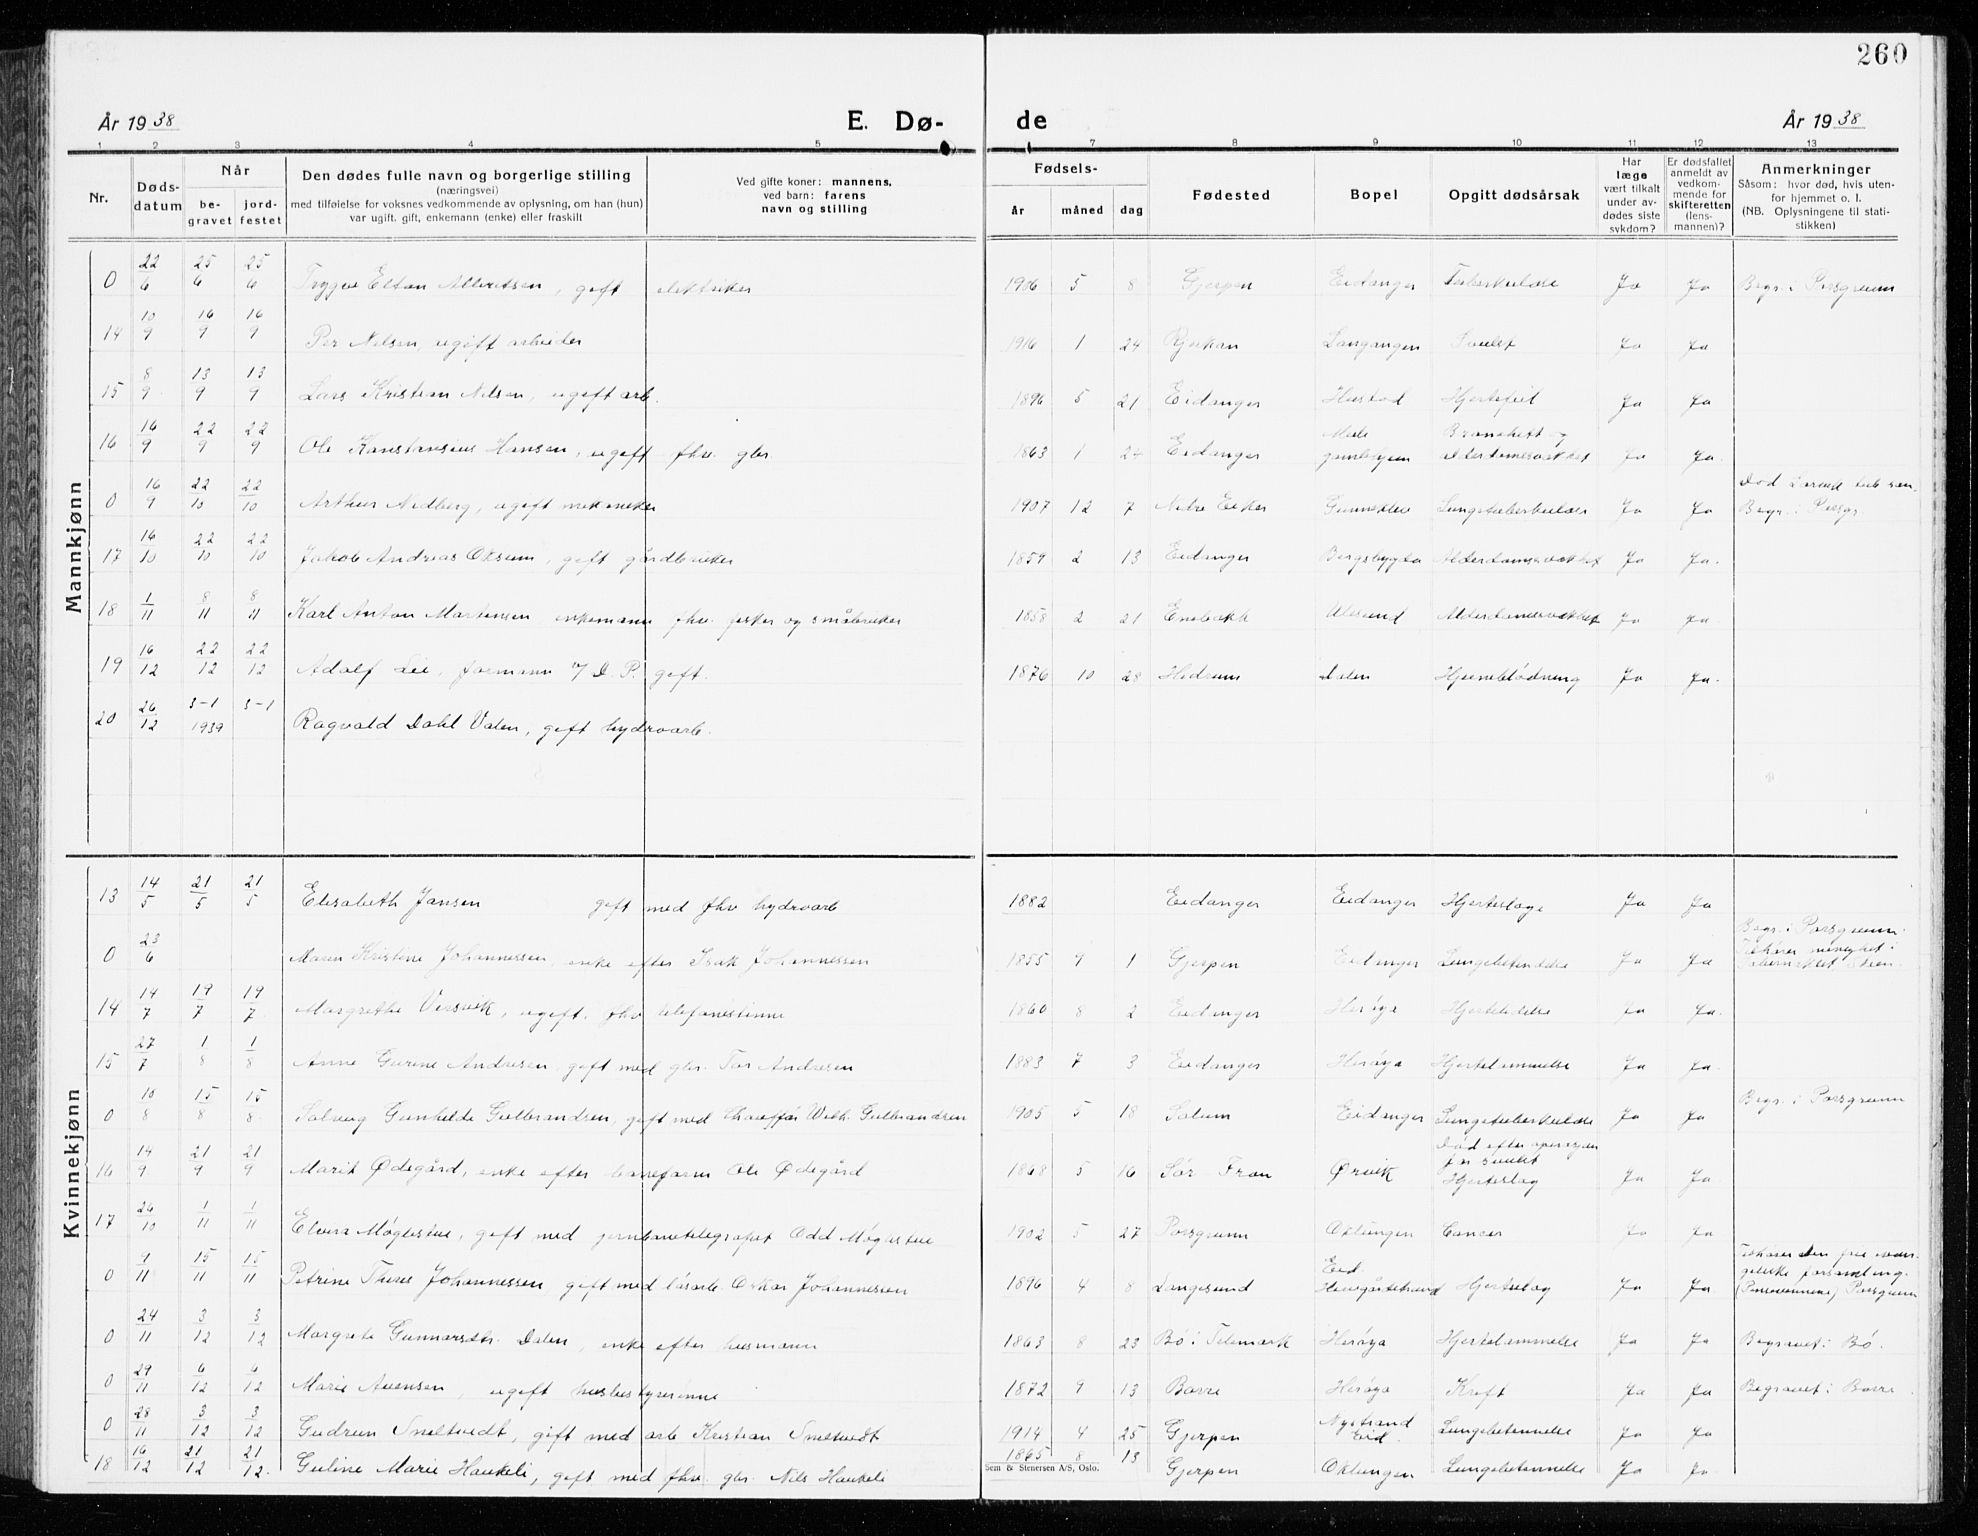 260
År 1938 E. Dø- de År 1938
1 2 3 4 5 7 8 9 10 11 12 13
Nr. Døds-datum Når be-gravet jord-festet
Den dødes fulle navn og borgerlige stilling
(næringsvei)
med tilføielse for voksnes vedkommende av oplysning, om han (hun)
var ugift, gift, enkemann (enke) eller fraskilt
Ved gifte koner: mannens,
ved barn: farens
navn og stilling
Fødsels- år måned dag
Fødested Bopel Opgitt dødsårsak
Har læge vært tilkalt under av-dødes siste sykdom?
Er dødsfallet anmeldt av vedkom-mende for skifteretten (lens-mannen)?
Anmerkninger
Såsom: hvor død, hvis uten-
for hjemmet o. l.
(NB. Oplysningene til stati-
stikken)
Mannkjønn
0 22/6 25/6 25/6 Trygve Elton Albretsen, gift elektriker 1906 5 8 Gjerpen Eidanger Tuberkulose Ja Ja Begr. i Porsgrunn
14 10/9 16/9 16/9 Per Nilsen, ugift arbeider 1916 1 24 Rjukan Langangen Svulst Ja Ja
15 8/9 13/9 13/9 Lars Kristian Nilsen, ugift arb. 1896 5 21 Eidanger Hustad Hjertefeil Ja Ja
16 16/9 22/9 22/9 Ole Konstansius Hansen, ugift fhv. gbr. 1863 1 24 Eidanger gamlehjem Bronchitt og alderdomssvakhet Ja Ja.
0 16/9 22/10 22/10 Arthur Nedberg, ugift mekaniker 1907 12 7 Nedre Eiker Gunneklev Lungetuberkulose Ja Ja Død i tub san. Begr. i Porsgr.
17 16/10 22/10 22/10 Jakob Andreas Oksum, gift gårdbruker 1859 2 13 Eidanger Bergsbygda Alderdomssvakhet Ja Ja.
18 1/11 8/11 8/11 Karl Anton Martinsen enkemann fhv. fisker og småbruker 1858 2 21 Enebakk Ålesund Alderdomssvakhet Ja Ja.
19 16/12 22/12 22/12 Adolf Lie, formann v/ D. P. gift. 1876 10 28 Hedrum Dalen Hjerneblødning Ja Ja.
20 26/12 3-1 1939 3-1 Ragvald Dahl Valen, gift hydroarb.
Kvinnekjønn
13 14/5 21/5 21/5 Elisabeth Jansen gift med fhv hydroarb 1882 Eidanger Eidanger Hjerteslag Ja Ja
0 23/6 Maren Kristine Johannessen, enke efter Isak Johannessen 1855 9 1 Gjerpen Eidanger Lungebetendelse Ja Ja Begr. i Porsgrunn. Tilhører menighet i Tabernaklet Skien.
14 14/7 19/7 19/7 Margrethe Versvik, ugift. fhv telefonistinne 1860 8 2 Eidanger Herøya Hjertelidelse Ja Ja.
15 27/7 1/8 1/8 Anne Gurine Andresen gift med gbr. Tor Andresen 1883 7 3 Eidanger Herøya Hjertelammelse Ja Ja.
0 10/8 15/8 15/8 Solveig Gunhilde Gulbrandsen, gift med chauffør Wilh. Gulbrandsen 1905 5 18 Solum Eidanger Lungetuberkulose Ja Ja Begr. i Porsgrunn
16 14/9 21/9 21/9 Marit Ødegård, enke efter baneform Ole Ødegård 1868 5 16 Sør-Fron Ørvik Død efter operasjon for svulst Hjerteslag Ja Ja.
17 26/10 1/11 1/11 Elvira Møglestue, gift med jernbanetelegrafist Odd Møglestue 1902 5 27 Porsgrunn Oklungen Cancer Ja Ja.
0 9/11 15/11 15/11 Petrine Therese Johannessen, gift med løsarb. Oskar Johannessen 1896 4 8 Langesund Eid Herregårdstrand Hjerteslag Ja Ja Tilhører den frie evangeliske forsamling. (Pinsevennene) Porsgrunn
0 24/11 3/12 3/12 Margrete Gunnarsdtr. Dalen, enke efter husmann 1863 8 23 Bø i Telemark Herøya Hjertelammelse Ja Ja Begravet i Bø.
0 29/11 6/12 6/12 Marie Evensen, ugift husbestyrerinne 1872 9 13 Borre Herøya Kreft Ja Ja Begravet i Borre
0 28/11 3/12 3/12 Gudrun Smeltvedt, gift med arb Kristian Smeltvedt 1914 4 25 Gjerpen Nystrand Eid. Lungebetennelse Ja Ja
18 16/12 21/12 21/12. Guline Marie Haukeli, gift med fhv. gbr. Nils Haukeli 1865 8 13 Gjerpen Oklungen Lungebetennelse Ja Ja.
Sem & Stenersen A/S, Oslo.